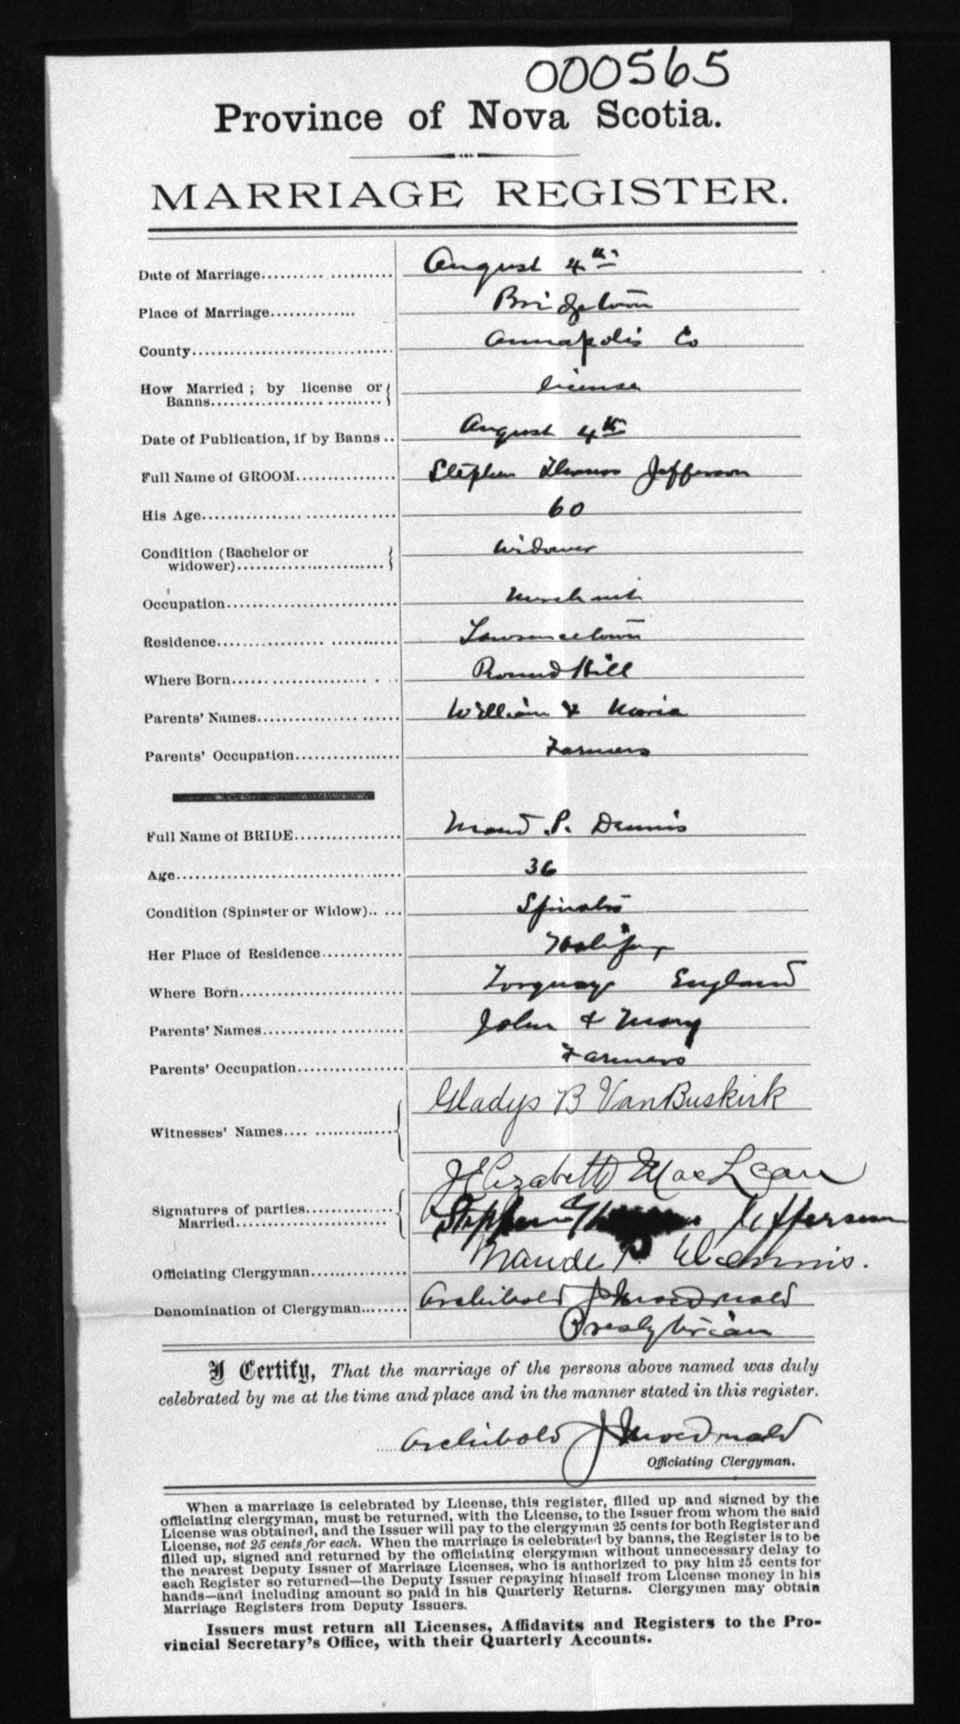 000565
Province of Nova Scotia.
MARRIAGE REGISTER.
Date of Marriage.................... August 4th
Place of Marriage............. Bridgetown
County............................... Annapolis Co
How Married; by license or
Banns.......................... license
Date of Publication, if by Banns.. August 4th
Full Name of GROOM............... Stephen Thomas Jefferson
His Age............................. 60
Condition (Bachelor or
widower)...................... Widower
Occupation.......................... Merchant
Residence......................... Lawrencetown
Where Born...................... Round Hill
Parents' Names.................... William & Maria
Parents' Occupation................ Farmers
Full Name of BRIDE............... Maud P. Dennis
Age.................................. 36
Condition (Spinster or Widow)..... Spinster
Her Place of Residence............ Halifax
Where Born........................ Torquay England
Parents' Names.................... John & Mary
Parents' Occupation................ Farmers
Witnesses' Names................. Gladys B VanBuskirk
J Elizabeth MacLean
Signatures of parties
Married...................... Stephen Jefferson
Maude P. Dennis.
Officiating Clergyman.............. Archibald J MacDonald
Denomination of Clergyman....... Presbyterian
I Certify, That the marriage of the persons above named was duly
celebrated by me at the time and place and in the manner stated in this register.
Archibald J MacDonald
Officiating Clergyman.
When a marriage is celebrated by License, this register, filled up and signed by the
officiating clergyman, must be returned, with the License, to the Issuer from whom the said
License was obtained, and the Issuer will pay to the clergyman 25 cents for both Register and
License, not 25 cents for each. When the marriage is celebrated by banns, the Register is to be
filled up, signed and returned by the officiating clergyman without unnecessary delay to
the nearest Deputy Issuer of Marriage Licenses, who is authorized to pay him 25 cents for
each Register so returned—the Deputy Issuer repaying himself from License money in his
hands—and including amount so paid in his Quarterly Returns. Clergymen may obtain
Marriage Registers from Deputy Issuers.
Issuers must return all Licenses, Affidavits and Registers to the Pro-
vincial Secretary's Office, with their Quarterly Accounts.